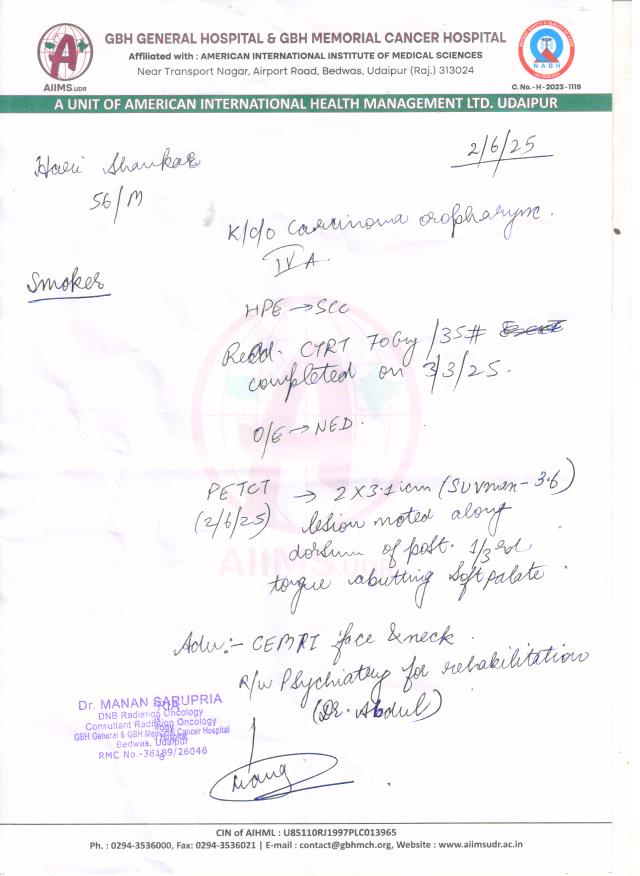 GBH GENERAL HOSPITAL & GBH MEMORIAL CANCER HOSPITAL
Affiliated with : AMERICAN INTERNATIONAL INSTITUTE OF MEDICAL SCIENCES
Near Transport Nagar, Airport Road, Bedwas, Udaipur (Raj.) 313024
AIIMS.UDR
NABH
C. No.- H - 2023 - 1119
A UNIT OF AMERICAN INTERNATIONAL HEALTH MANAGEMENT LTD. UDAIPUR
2/6/25
Hari Shankar
56/M
K/c/o Carcinoma oropharynx.
IV A.
Smoker
HPE → SCC
Recd. CTRT 70Gy /35#
completed on 3/3/25.
O/E → NED.
PETCT → 2 X 3.1cm (SUVmax - 3.6)
(2/6/25) lesion noted along
dorsum of post. 1/3rd
tongue abutting soft palate.
AIIMS.UDR
Adv:- CEMRI face & neck.
R/w Psychiatry for rehabilitation
(Dr. Abdul)
Dr. MANAN SARUPRIA
DNB Radiation Oncology
Consultant Radiation Oncology
GBH General & GBH Memorial Cancer Hospital
Bedwas, Udaipur
RMC No.-38189/26046
CIN of AIHML : U85110RJ1997PLC013965
Ph. : 0294-3536000, Fax: 0294-3536021 | E-mail : contact@gbhmch.org, Website : www.aiimsudr.ac.in